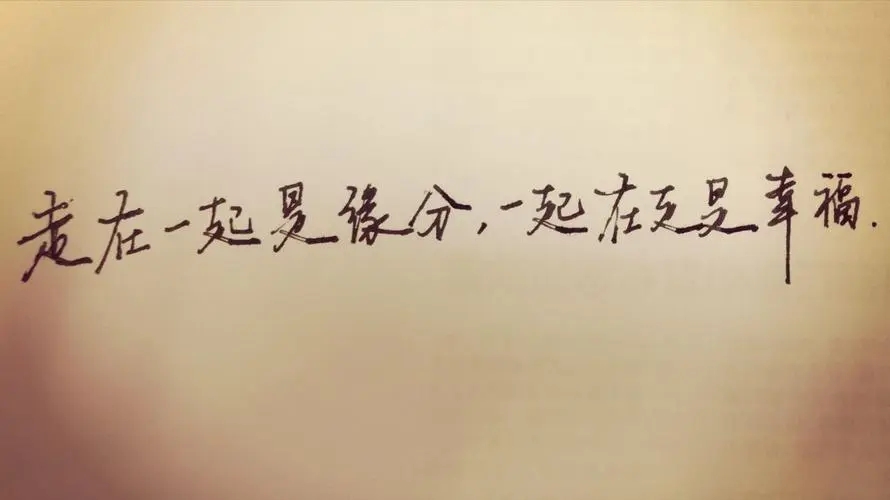 走在一起是缘分,一起在更是幸福.